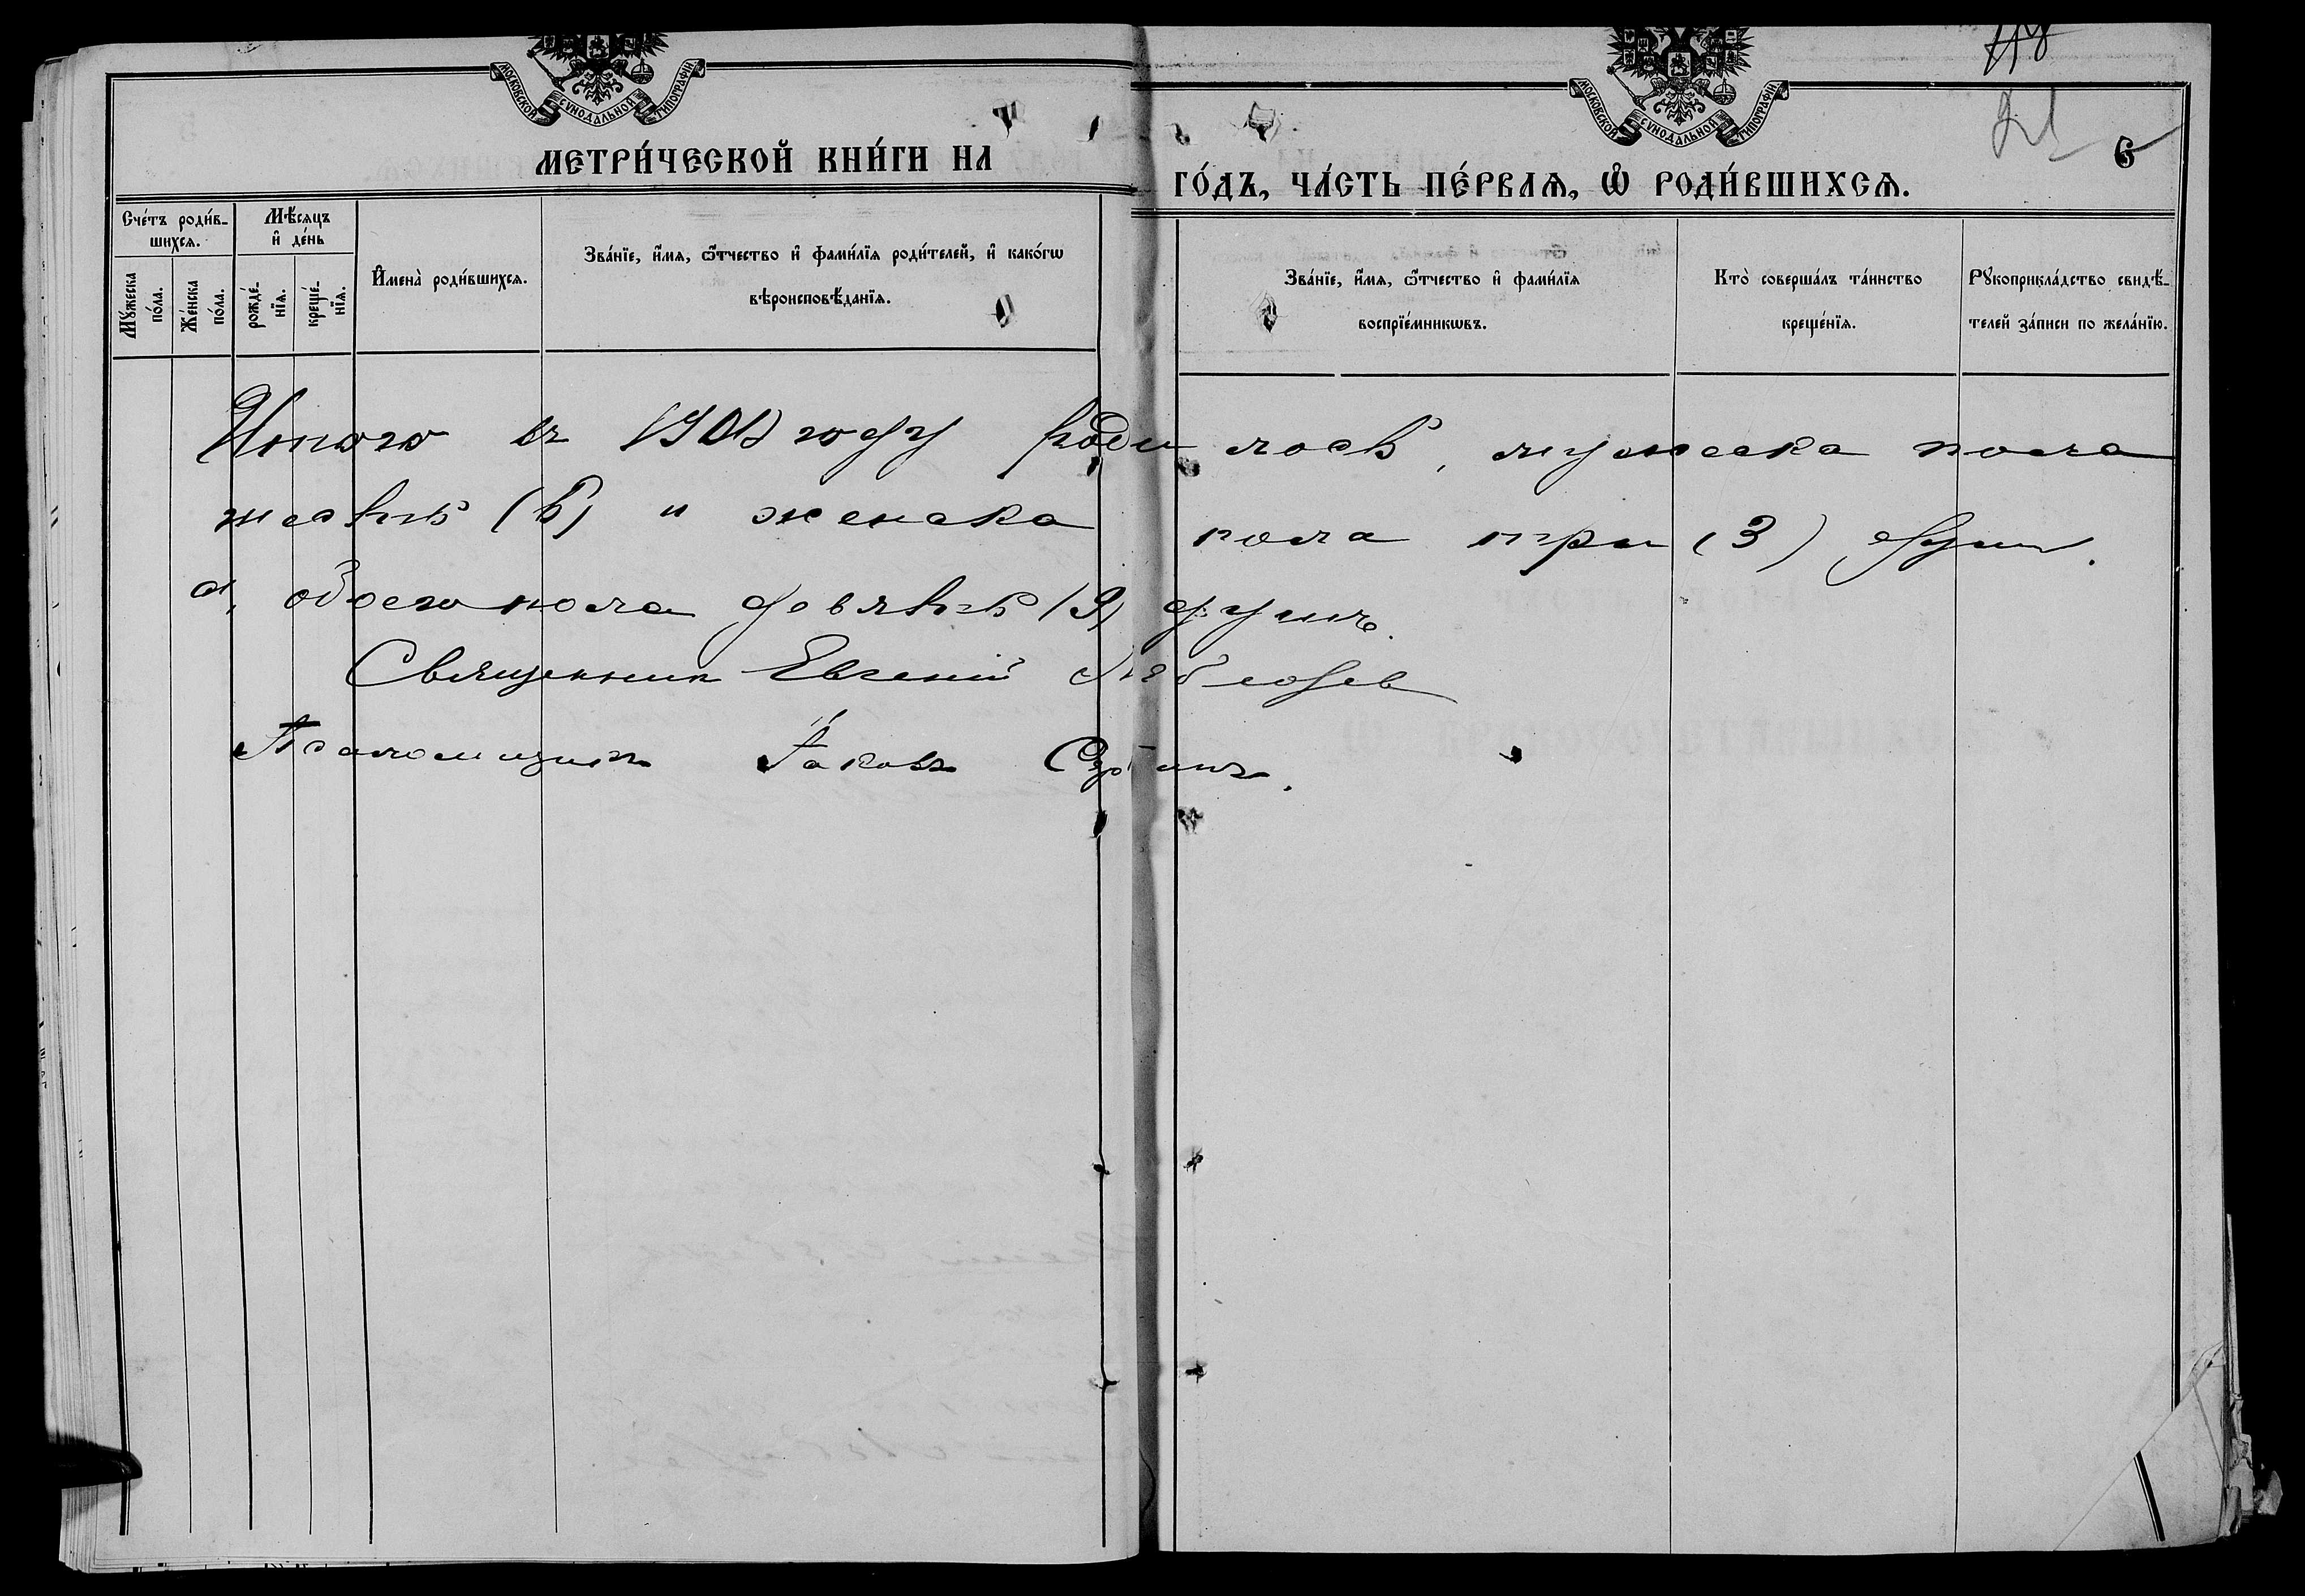 МОСКОВСКОЙ СѴНОДАЛЬНОЙ ТИПОГРАФІИ
МОСКОВСКОЙ СѴНОДАЛЬНОЙ ТИПОГРАФІИ
6
МЕТРИ́ЧЕСКОЙ КНИ́ГИ НА ГО́ДЪ, ЧА́СТЬ ПЕ́РВАѦ, Ѽ РОДИ́ВШИХСѦ.
Сче́тъ роди́в-
шихсѧ.
Мꙋ́жеска
по́ла.
Же́нска
по́ла.
Мѣ́сѧцъ
и҆ де́нь
рожде́-
нїѧ.
креще́-
нїѧ.
И҆мена̀ роди́вшихсѧ.
Зва́нїе, и҆́мѧ, ѻ҆́тчество и҆ фами́лїѧ роди́телей, и҆ како́гѡ
вѣроисповѣ́данїѧ.
Зва́нїе, и҆́мѧ, ѻ҆́тчество и҆ фами́лїѧ
воспрїе́мникѡвъ.
Кто̀ соверша́лъ та́инство
креще́нїѧ.
Рꙋкоприкла́дство свидѣ́-
телей за́писи по жела́нїю.
Итого въ 1901 году родилось, мужеска пола
шесть (6) и женска пола три (3) души.
а, обоего пола девять (9) душъ.
Священник Евгеній
Псаломщикъ Іаковъ